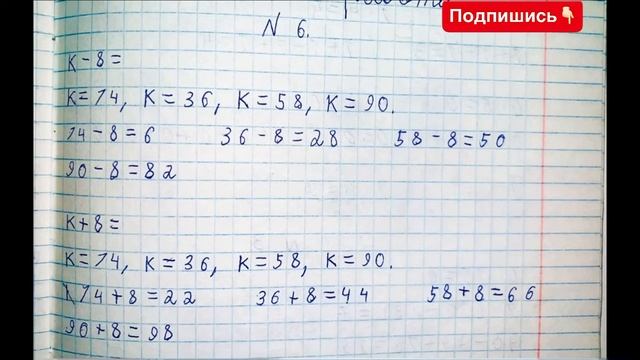 Подпишись👇
N 6.
к-8=
к=14, к=36, к=58, к=90.
14-8=6 36-8=28 58-8=50
90-8=82
к+8=
к=14, к=36, к=58, к=90.
14+8=22 36+8=44 58+8=66
90+8=98